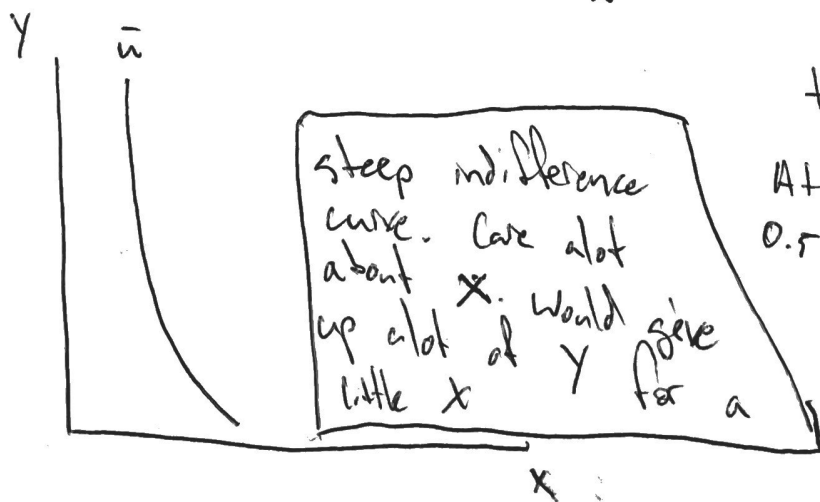 Y
ū
steep indifference
curve. Care alot
about X. Would give
up alot of Y for a
little X
At
0.5
X